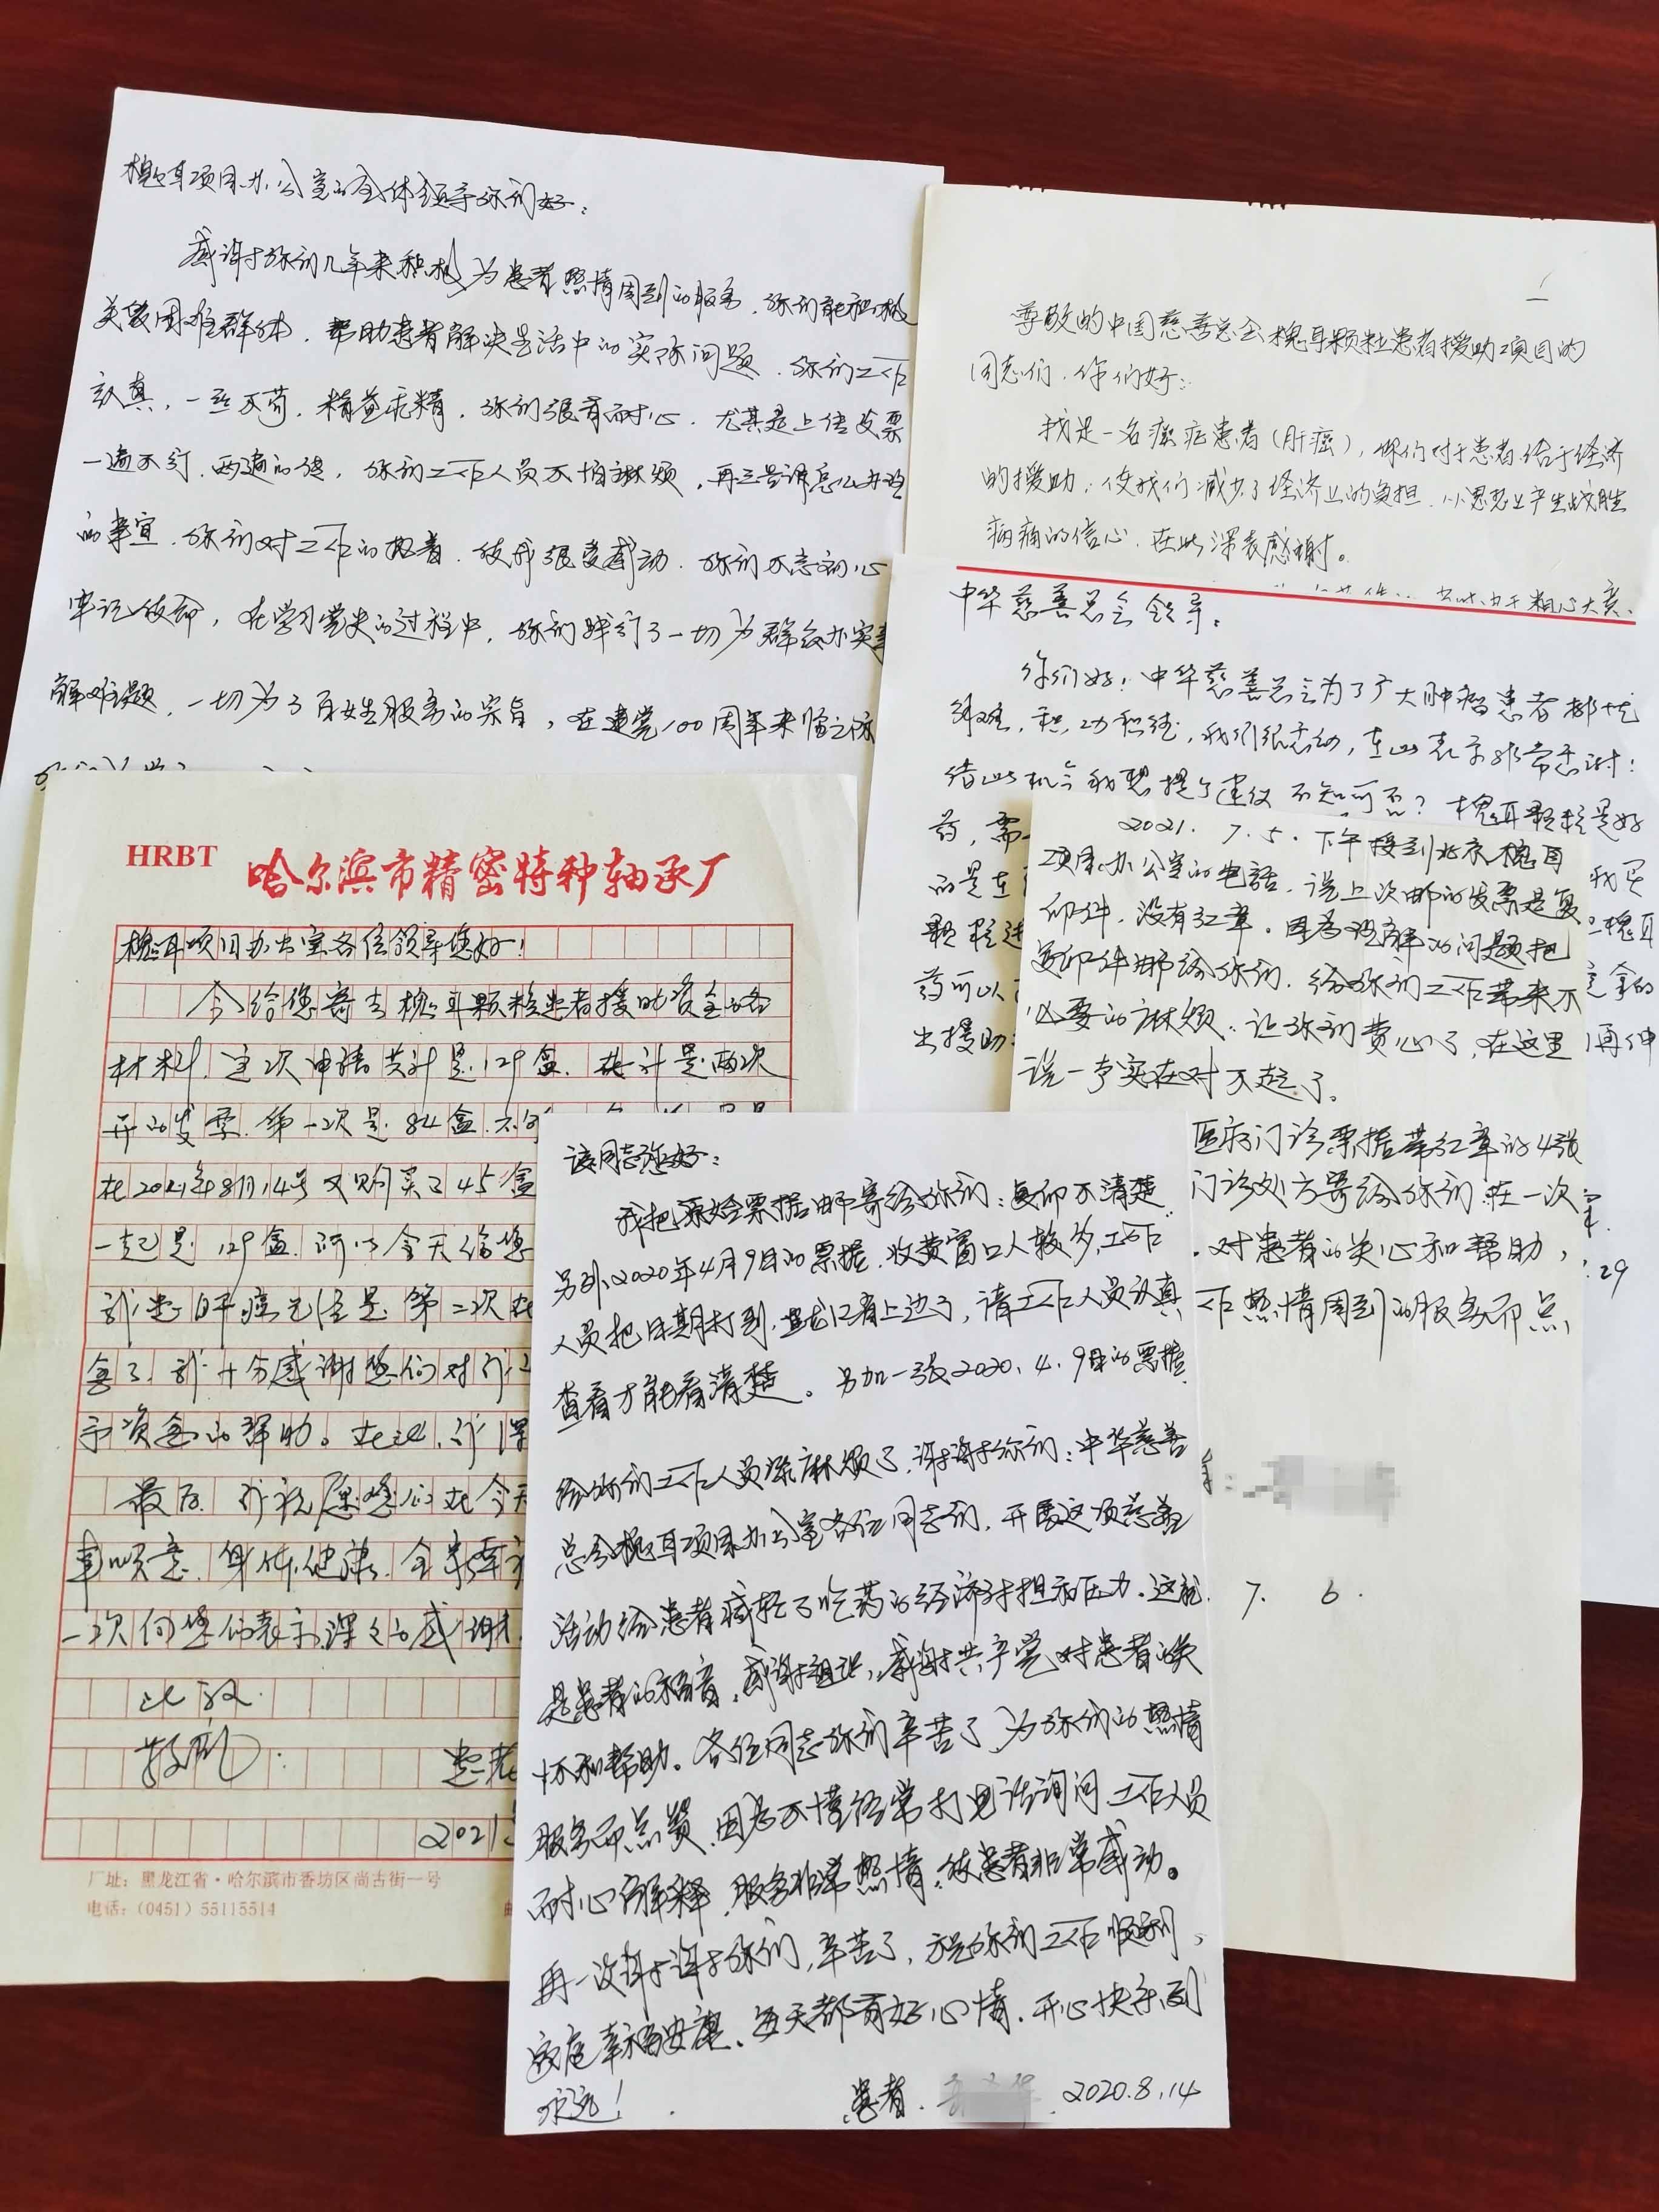 槐耳项目办公室的全体领导你们好：
感谢你们几年来积极为患者热情周到的服务，你们能积极
关爱困难群体，帮助患者解决生活中的实际问题，你们工作
认真，一丝不苟，精益求精，你们很有耐心，尤其是上传发票
一遍不行，两遍的传，你们工作人员不怕麻烦，再三告诉怎么办理
的事宜，你们对工作的执着，使我很受感动，你们不忘初心
牢记使命，在学习党史的过程中，你们践行了一切为群众办实事
解难题，一切为了百姓服务的宗旨，在建党100周年来临之际
尊敬的中国慈善总会槐耳颗粒患者援助项目的
同志们，你们好：
我是一名癌症患者（肝癌），你们对于患者给于经济
的援助，使我们减少了经济上的负担，从思想上产生战胜
病痛的信心，在此深表感谢。
由于粗心大意、
中华慈善总会领导：
你们好！中华慈善总会为了广大肿瘤患者排忧
解难，积功积德，我们很感动，在此表示非常感谢！
借此机会我想提个建议不知可否？槐耳颗粒是好
药，需
的是在
我买
颗粒进
槐耳
药可以
拿的
出援助
再伸
2021.7.5.下午接到北京槐耳
项目办公室的电话，说上次邮的发票是复
印件，没有红章，因为理解的问题把
复印件邮给你们，给你们工作带来不
必要的麻烦，让你们费心了，在这里
说一声实在对不起了。
医疗门诊票据带红章的4张
门诊处方寄给你们在一次
对患者的关心和帮助，
作热情周到的服务而点
29
7. 6.
HRBT 哈尔滨市精密特种轴承厂
槐耳项目办公室各位领导您好！
今给您寄去槐耳颗粒患者援助资金的各
材料，这次申请共计是129盒，共计是两次
开的发票，第一次是84盒，
在2021年8月14号又购买了45盒
一起是129盒，所以今天给您
我患肝癌已经是第二次
复了，我十分感谢您们对我
予资金的帮助。在此，我深
最后，我祝愿您们在今天
事顺意，身体健康，全家
一次向您们表示深深的感谢
此致
敬礼：
患者
2021
厂址：黑龙江省·哈尔滨市香坊区尚古街一号
电话：(0451) 55115514
该同志您好：
我把原始票据邮寄给你们：复印不清楚，
另外2020年4月9日的票据，收费窗口人较多，工作
人员把日期打到，黑龙江省上边了，请工作人员认真
查看才能看清楚。另加一张2020.4.9日的票据
给你们工作人员添麻烦了，谢谢你们：中华慈善
总会槐耳项目办公室各位同志们，开展这项慈善
活动给患者减轻了吃药的经济负担和压力，这就
是患者的福音，感谢组织，感谢共产党对患者的关
怀和帮助。各位同志你们辛苦了，为你们的热情
服务而点赞，因为不懂经常打电话询问，工作人员
耐心解释，服务非常热情，使患者非常感动。
再一次谢谢你们，辛苦了，祝你们工作顺利，
家庭幸福安康，每天都有好心情，开心快乐到
永远！
患者. 2020.8.14